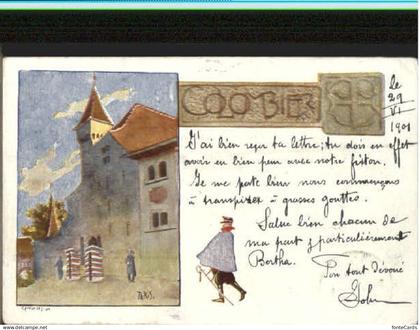 COLOMBIER
le
29
VI
1901
J'ai bien reçu ta lettre; tu dois en effet
avoir eu bien peur avec notre fiston.
Je me porte bien nous commençons
à transpirer à grosses gouttes.
Salue bien chacun de
ma part & particulièrement
Bertha.
Ton tout dévoué
John